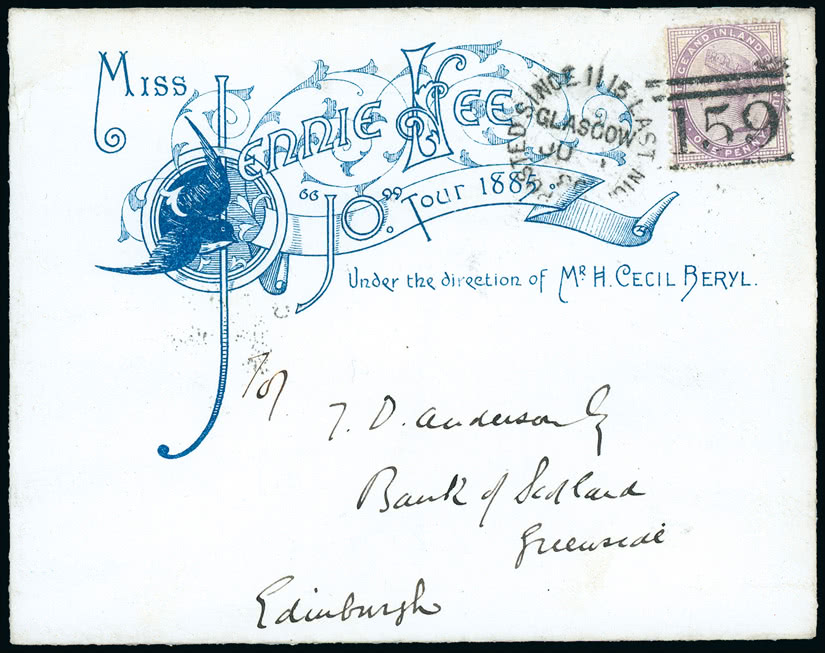 Miss
Jennie Lee
"JO". Tour 1889.
Under the direction of Mr. H. Cecil Beryl.
POSTED SINCE 11 15 LAST NIG
GLASGOW
JU
CE AND INLAND
ONE PENNY
159
To/
T. D. Anderson
Bank of Scotland
Greenside
Edinburgh